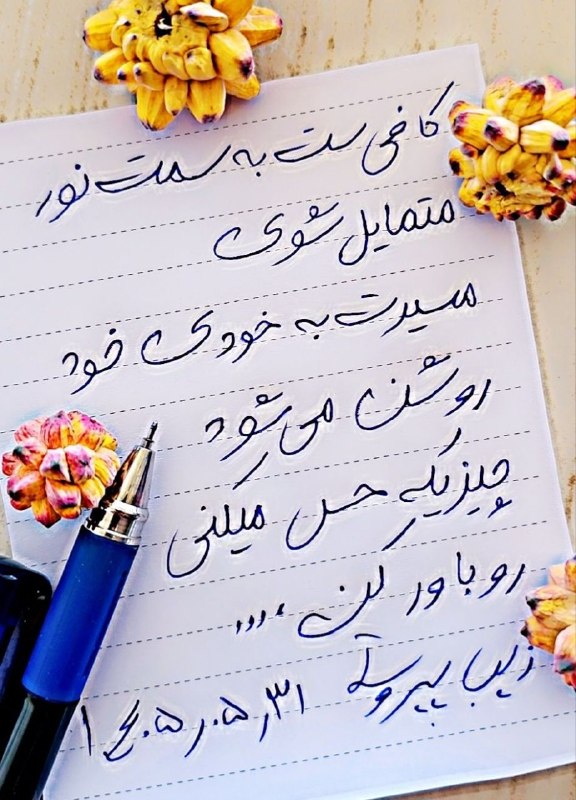 کافی ست به سمت نور
متمایل شوی
مسیرت به خودی خود
روشن می شود
چیزیکه حس میکنی
رو باور کن ....
زیبا پیروتی ۱۴۰۵٫۰۵٫۳۱